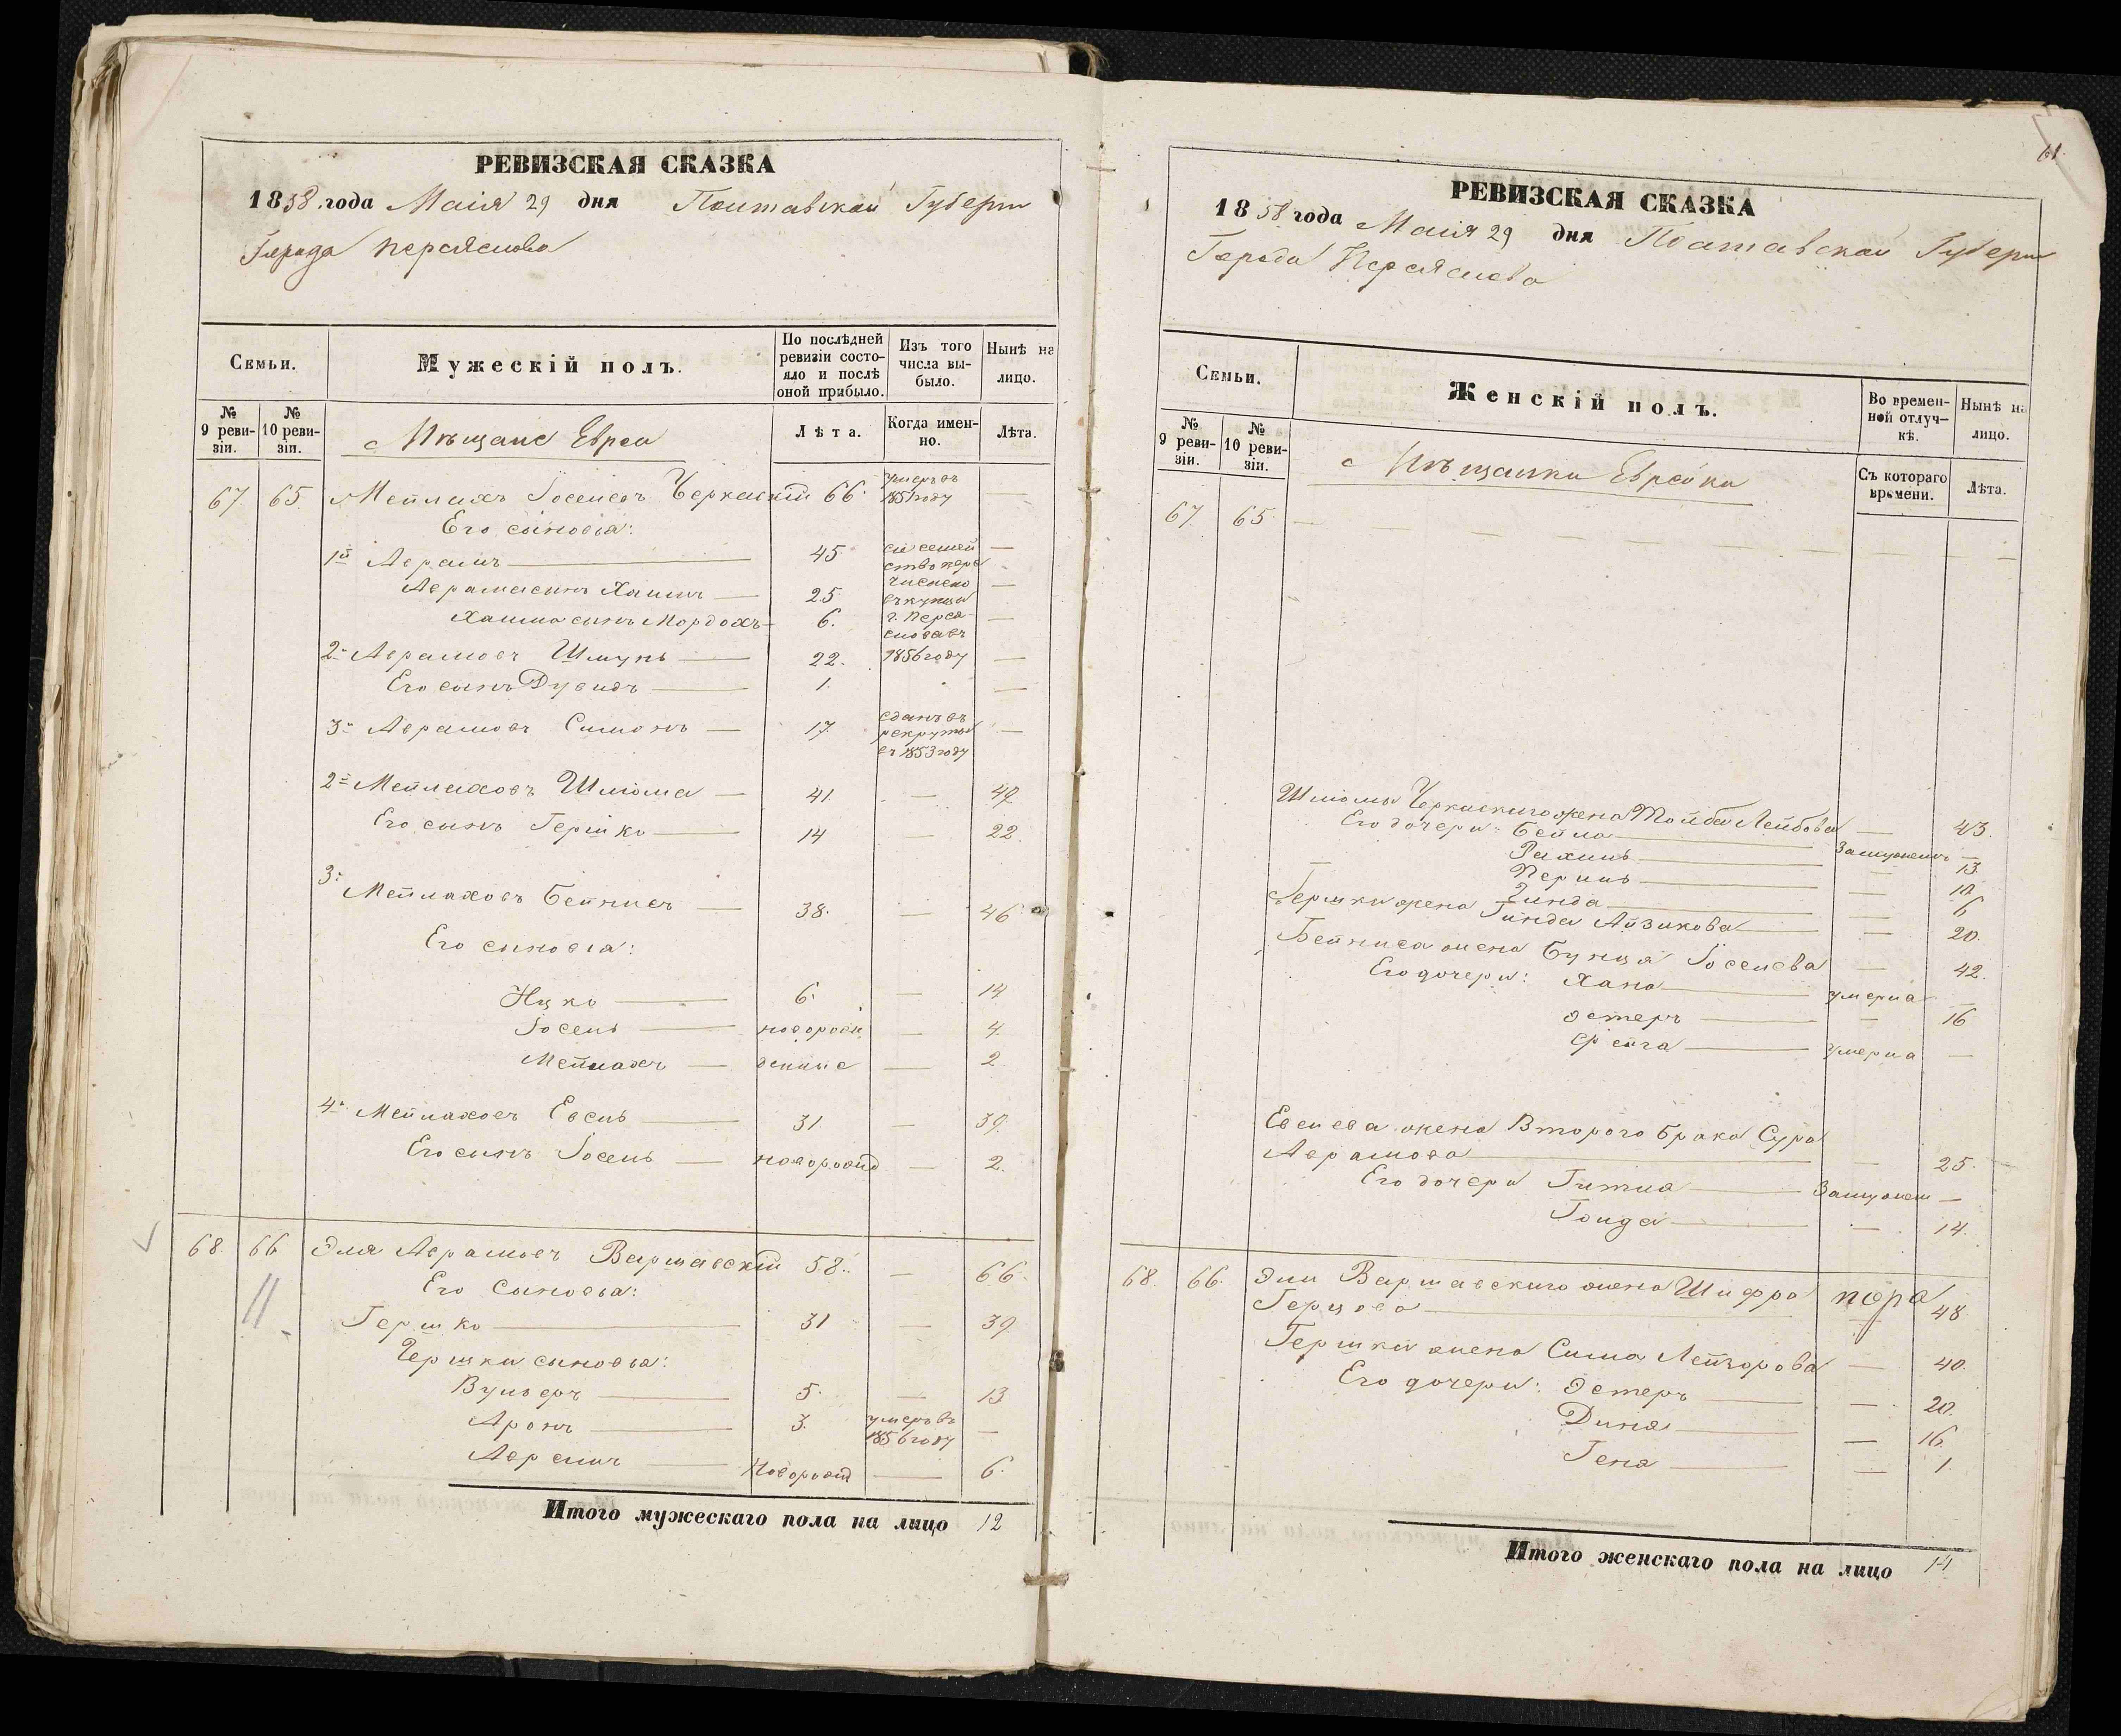 РЕВИЗСКАЯ СКАЗКА
1858 года Маія 29 дня Полтавской Губерн
Города Переяслова
Семьи.
Мужескій полъ.
По послѣдней ревизіи состояло и послѣ оной прибыло.
Изъ того числа выбыло.
Нынѣ на лицо.
№ 9 ревизіи.
№ 10 ревизіи.
Мѣщане Евреи
Лѣта.
Когда именно.
Лѣта.
67. 65. Мейлахъ Іоселевъ Черкаскій 66. умеръ въ 1851 году —
Его сыновья:
1й Аврамъ — 45 сіе семейство пере —
Аврама сынъ Хаимъ — 25 числено въ купцы —
Хаима сынъ Мордохъ — 6. г. Переяслова въ —
2й Аврамовъ Шмуль — 22. 1856 году —
Его сынъ Дувидъ — 1. —
3й Аврамовъ Симонъ — 17. сданъ въ рекруты въ 1853 году —
2й Мейлаховъ Шлюма — 41. — 49.
Его сынъ Гершко — 14 — 22.
3й Мейлаховъ Бейнисъ — 38. — 46
Его сыновья:
Ицко — 6. — 14
Іосель — новорожд — 4.
Мейлахъ — денные — 2
4й Мейлаховъ Евель — 31 — 39.
Его сынъ Іосель — новорожд — 2.
68. 66 Эля Аврамовъ Варшавскій 58. — 66.
Его Сыновья:
Гершко — 31 — 39.
Гершки сыновья:
Вульфъ — 5. — 13
Аронъ — 3. умеръ въ 1856 году —
Аврамъ — Новорожд — 6.
Итого мужескаго пола на лицо 12
61.
РЕВИЗСКАЯ СКАЗКА
1858 года Маія 29 дня Полтавской Губерн
Города Переяслова
Семьи.
Женскій полъ.
Во временной отлучкѣ.
Нынѣ на лицо.
№ 9 ревизіи.
№ 10 ревизіи.
Мѣщанки Еврейки
Съ котораго времени.
Лѣта.
67. 65 —
Шлюмы Черкаскаго жена Тойба Лейбова — 43.
Его дочери: Бейла — Замужемъ —
Рахиль — 13.
Перль —
Зинда — 6
Гершки жена Гинда Айзикова — 20.
Бейниса жена Бунця Іоселева — 42.
Его дочери: Хана — умерла —
Эстеръ — 16
Фейга — умерла —
Евелева жена Второго брака Сура
Аврамова — 25.
Его дочери Гитла — Замужем —
Голда — 14.
68. 66. Эли Варшавскаго жена Шифра
Герцова — 48
Гершки жена Сима Лейзорова — 40.
Его дочери: Эстеръ — 20.
Дина — 16.
Гена — 1.
Итого женскаго пола на лицо 14